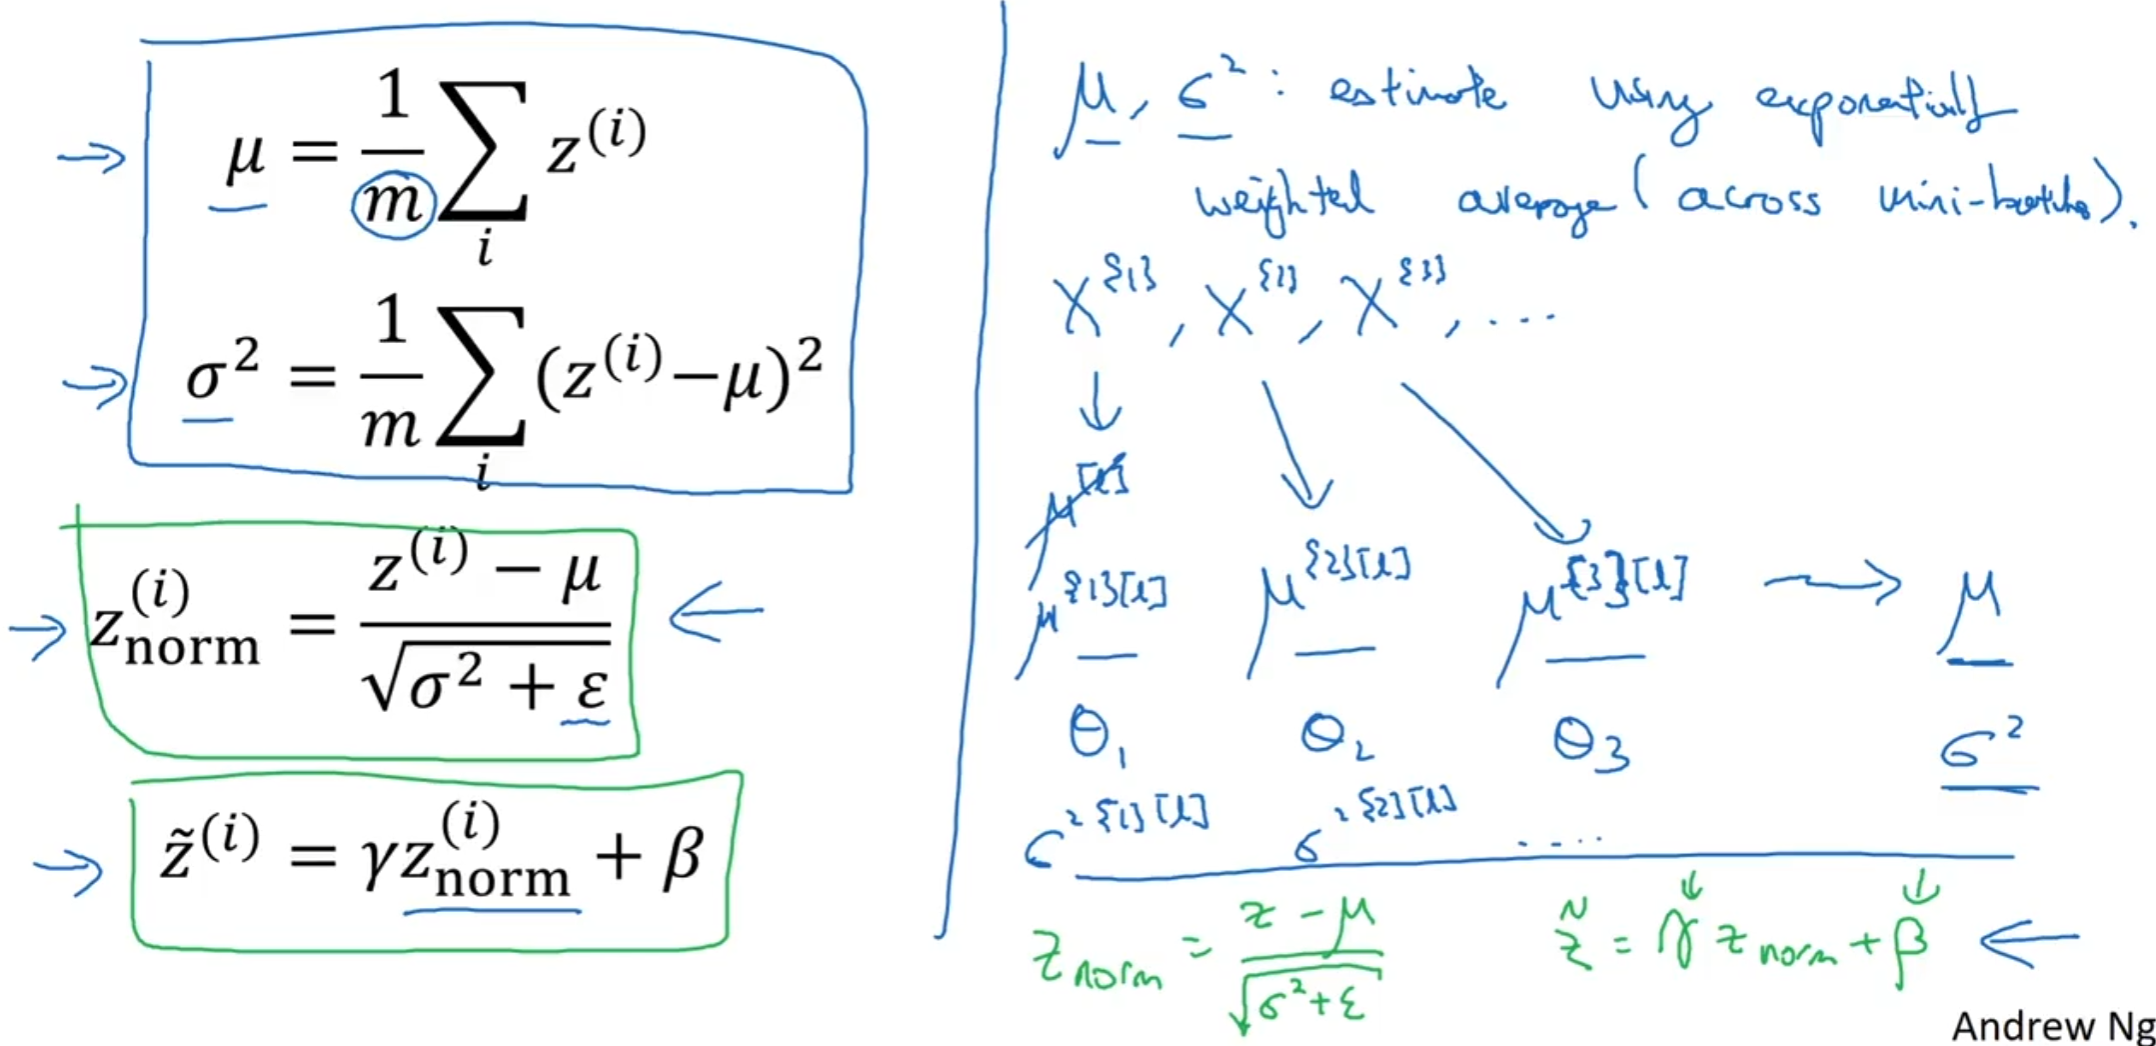 μ = 1/m ∑_i z^(i)
σ² = 1/m ∑_i (z^(i)−μ)²
z_norm^(i) = (z^(i) − μ) / √(σ² + ε)
z̃^(i) = γz_norm^(i) + β
μ, σ² : estimate using exponentially
weighted average (across mini-batches).
X^{1}, X^{2}, X^{3}, ...
μ^[l]
μ^{1}[l] μ^{2}[l] μ^{3}[l] → μ
θ₁ θ₂ θ₃ σ²
σ²^{1}[l] σ²^{2}[l] ....
z_norm = (z − μ) / √(σ²+ε) z̃ = γ z_norm + β
Andrew Ng